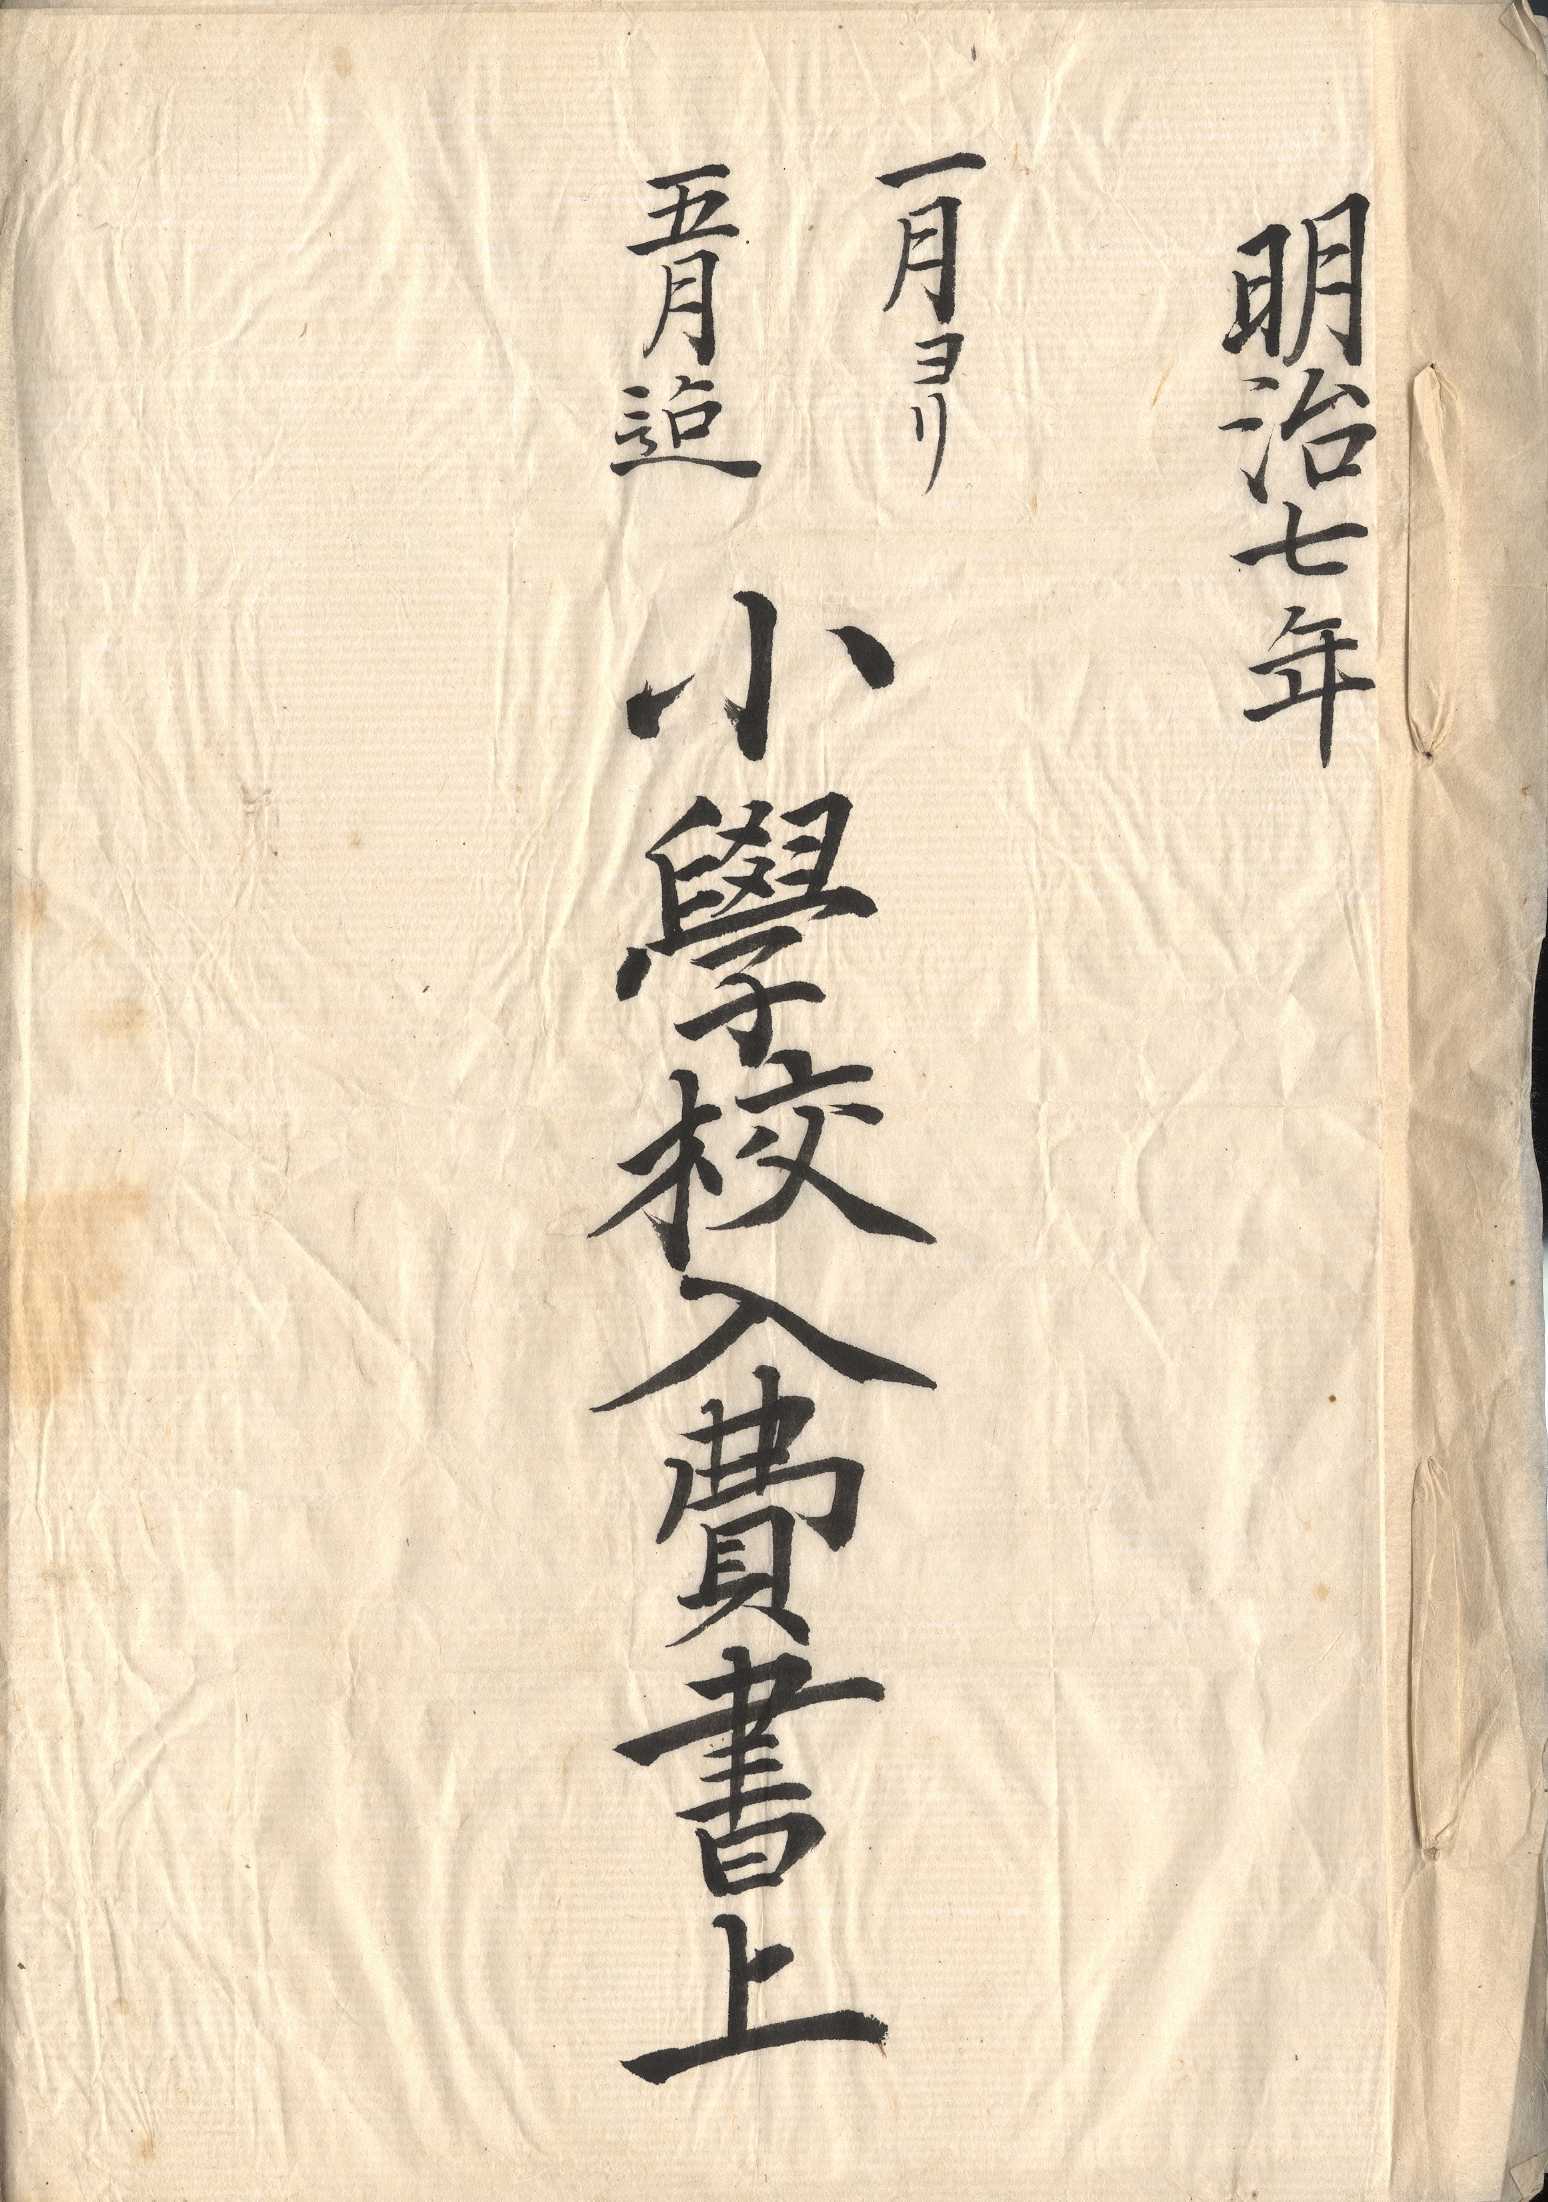 明治七年
一月ヨリ
五月迠
小學校入費書上